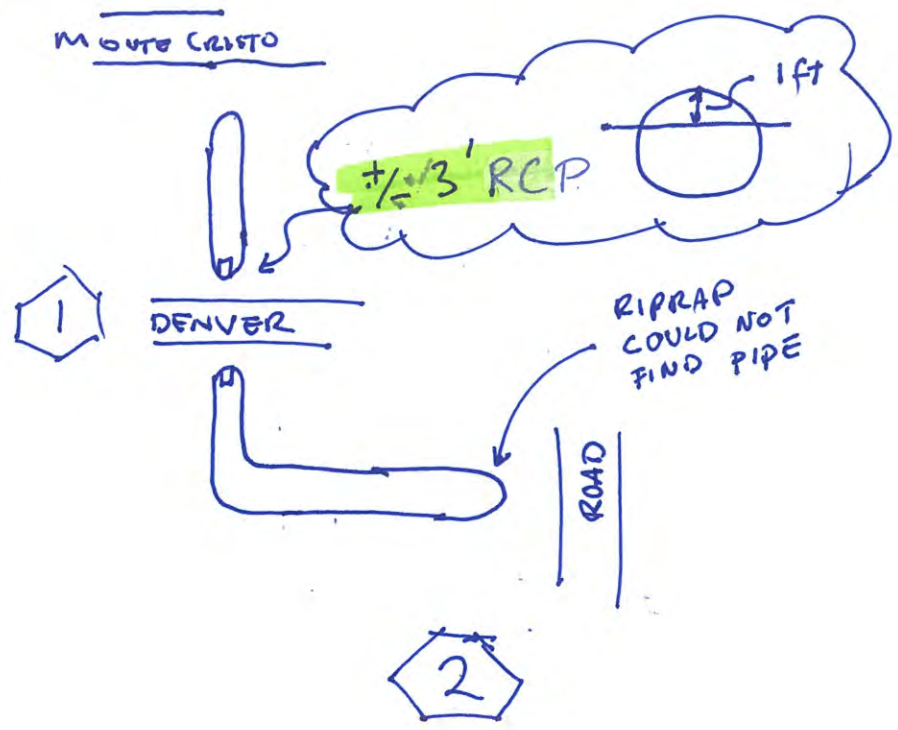 MONTE CRISTO
1 ft
+/- 3' RCP
1
DENVER
RIPRAP
COULD NOT
FIND PIPE
ROAD
2